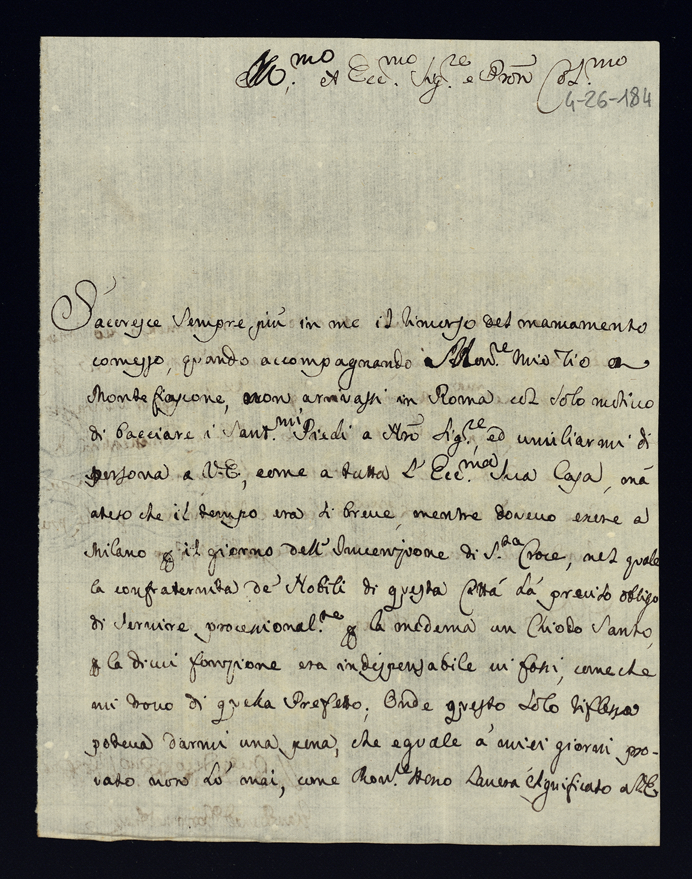 Ill.mo et Ecc.mo Sig.re e Pron Col.mo
4-26-184
S'acresce sempre più in me il rimorso del mancamento
comesso, quando accompagnando Mon.re mio Zio a
Montefiascone, non arrivassi in Roma col solo motivo
di bacciare i Sant.mi Piedi a Nro Sig.re, ed umiliarmi di
persona a V.E., come a tutta l'Ecc.ma Sua Casa, mà
atteso che il tempo era sì breve, mentre dovevo essere a
Milano p il giorno dell'Invenzione di S.ta Croce, nel quale
la confraternita de' Nobili di questa Città hà preciso obligo
di servire processional.te p la medema un Chiodo Santo,
p la di cui fonzione era indispensabile vi fossi, come che
mi trovo di questa Prefetto; Onde questo solo riflesso
poteva darmi una pena, che eguale a' miei giorni pro-
vato non hò mai, come Mon.re stesso haverà significato a V.E.